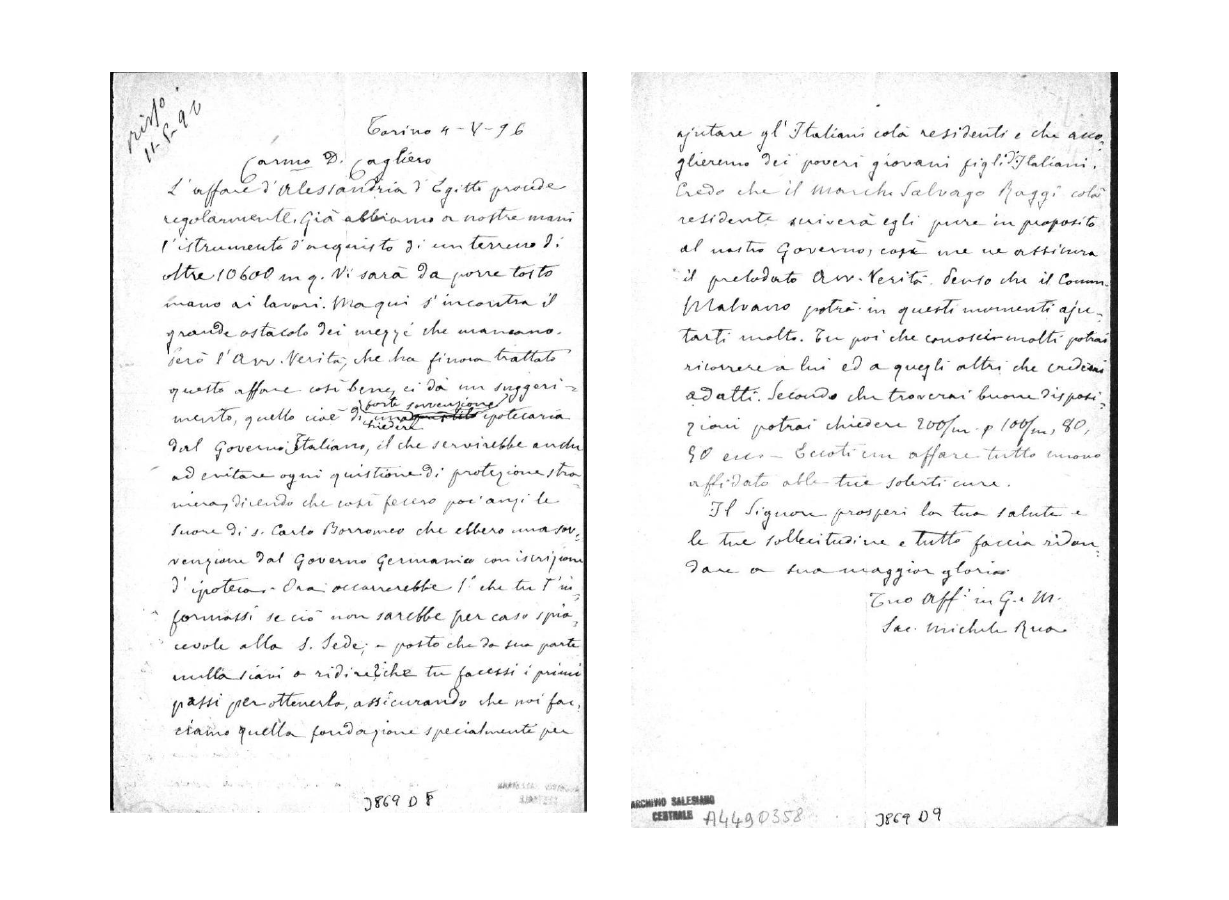 risp.
11-5-96
Torino 4-V-96
Carmo D. Cagliero
L'affare d'Alessandria d'Egitto procede
regolarmente. Già abbiamo a nostre mani
l'istrumento d'acquisto di un terreno di
oltre 10600 m q. Vi sarà da porre tosto
mano ai lavori. Ma qui s'incontra il
grande ostacolo dei mezzi che mancano.
Però l'Avv. Verità, che ha finora trattato
questo affare così bene, ci dà un suggeri-
forte sovvenzione
mento, quello cioè di ipotecaria
chiedere
dal Governo Italiano, il che servirebbe anche
ad evitare ogni quistione di protezione stra-
niera, dicendo che così fecero poc'anzi le
suore di S. Carlo Borromeo che ebbero una sov-
venzione dal Governo Germanico con iscrizione
d'ipoteca. Ora occorrerebbe 1° che tu t'in-
formassi se ciò non sarebbe per caso spia-
cevole alla S. Sede; e posto che da sua parte
nulla siavi a ridire, che tu facessi i primi
passi per ottenerlo, assicurando che noi fac-
ciamo quella fondazione specialmente per
J869 D 8
ajutare gl'Italiani colà residenti e che acco-
glieremo dei poveri giovani figli d'Italiani.
Credo che il March. Salvago Raggi colà
residente scriverà egli pure in proposito
al nostro Governo; così me ne assicura
il prelodato Avv. Verità. Penso che il Comm.
Malvano potrà in questi momenti aju-
tarti molto. Tu poi che conosci molti potrai
ricorrere a lui ed a quegli altri che crederai
adatti. Secondo che troverai buone disposi-
zioni potrai chiedere 200/m. p 100/m, 80,
50 ecc. - Eccoti un affare tutto nuovo
affidato alle tue solerti cure.
Il Signore prosperi la tua salute e
le tue sollecitudine e tutto faccia ridon-
dare a sua maggior gloria
Tuo Aff° in G. e M.
Sac. Michele Rua
ARCHIVIO SALESIANO
CENTRALE
A4490358
J869 D9